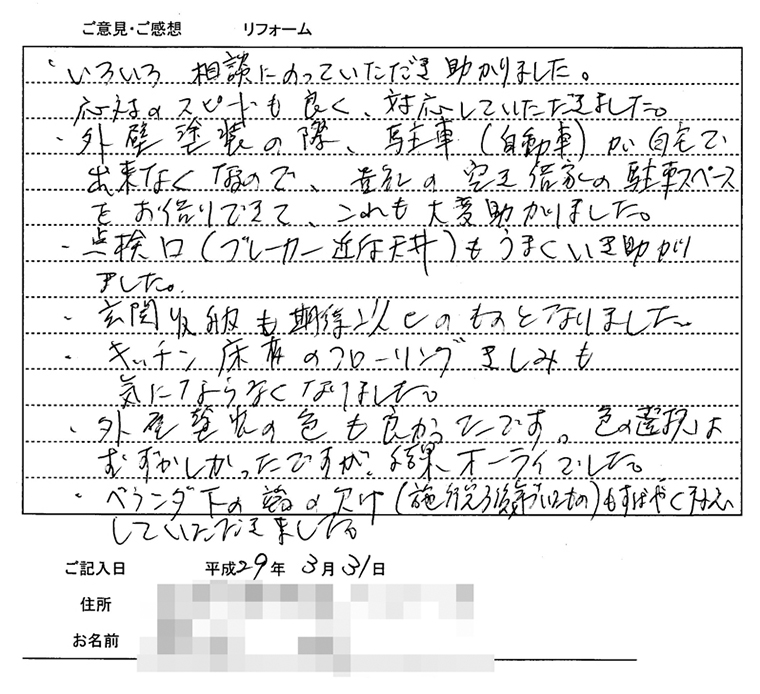 ご意見・ご感想　リフォーム
・いろいろ 相談にのっていただき助かりました。
応対のスピードも良く、対応していただきました。
・外壁塗装の際、駐車(自動車)が自宅で
出来なくなるので、貴社の空き借家の駐車スペース
をお借りできて、これも大変助かりました。
・点検口(ブレーカー近な天井)もうまくいき助かり
ました。
・玄関収納も期待以上のものとなりました。
・キッチン床のフローリングきしみも
気にならなくなりました。
・外壁塗装の色も良かったです。色の選択は
むずかしかったですが、結果オーライでした。
・ベランダ下の の欠け(施行完了後 もの)もすばやく対応
していただきました。
ご記入日　平成29年 3月 31日
住所
お名前